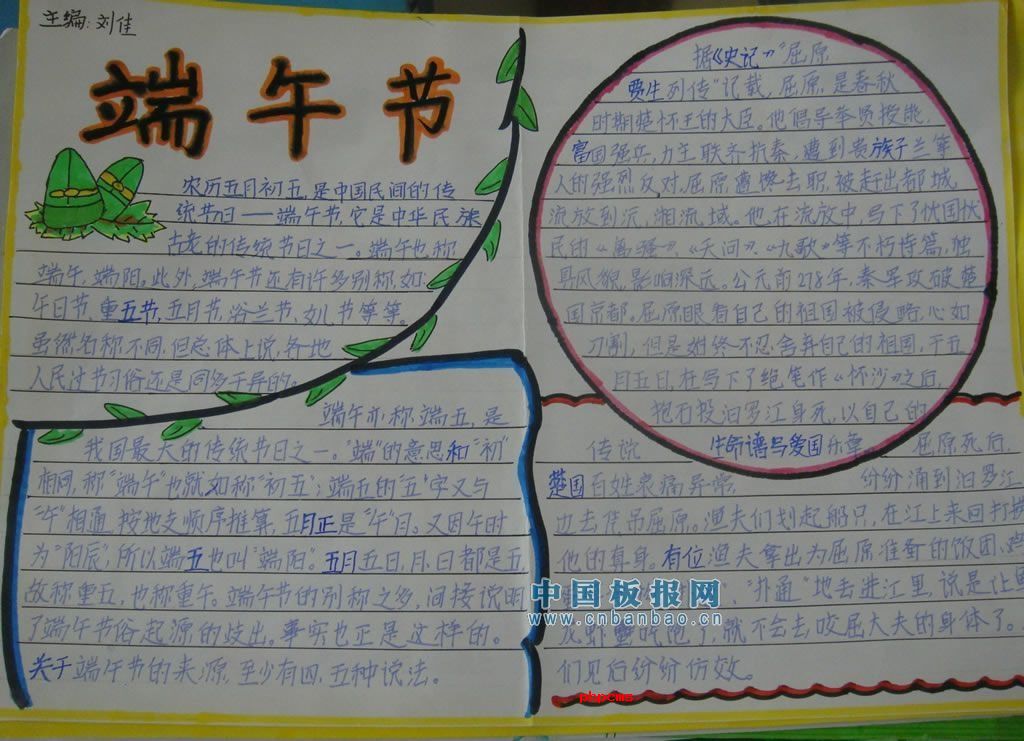 主编：刘佳
端午节
农历五月初五，是中国民间的传
统节日——端午节，它是中华民族
古老的传统节日之一。端午也称
端午，端阳。此外，端午节还有许多别称，如：
午日节，重五节，五月节，浴兰节，女儿节等等。
虽然名称不同，但总体上说，各地
人民过节习俗还是同多于异的。
端午亦称端五，是
我国最大的传统节日之一。“端”的意思和“初”
相同，称“端午”也就如称“初五”；端五的“五”字又与
“午”相通，按地支顺序推算，五月正是“午”月。又因午时
为“阳辰”，所以端五也叫“端阳”。五月五日，月、日都是五，
故称重五，也称重午。端午节的别称之多，间接说明
了端午节俗起源的歧出。事实也正是这样的。
关于端午节的来源，至少有四、五种说法。
据《史记》“屈原
贾生列传”记载，屈原，是春秋
时期楚怀王的大臣。他倡导举贤授能，
富国强兵，力主联齐抗秦，遭到贵族子兰等
人的强烈反对，屈原遭馋去职，被赶出都城，
流放到沅、湘流域。他在流放中，写下了忧国忧
民的《离骚》、《天问》、《九歌》等不朽诗篇，独
具风貌，影响深远。公元前278年，秦军攻破楚
国京都。屈原眼看自己的祖国被侵略，心如
刀割，但是始终不忍舍弃自己的祖国，于五
月五日，在写下了绝笔作《怀沙》之后，
抱石投汨罗江身死，以自己的
生命谱写爱国乐章。
传说 屈原死后，
楚国百姓哀痛异常， 纷纷涌到汨罗江
边去凭吊屈原。渔夫们划起船只，在江上来回打捞
他的真身。有位渔夫拿出为屈原准备的饭团、鸡
“扑通”地丢进江里，说是让鱼
龙虾蟹吃饱了，就不会去咬屈大夫的身体了。
们见后纷纷仿效。
中国板报网
www.cnbanbao.cn
phpcms